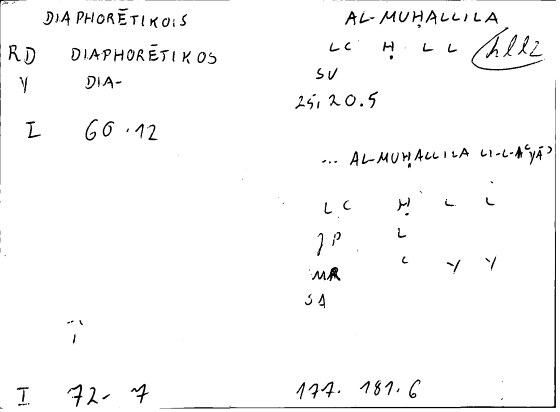 DIAPHORĒTIKOIS AL-MUḤALLILA
RD DIAPHORĒTIKOS LC Ḥ L L ḥll2
Y DIA- SV
25, 20.5
I 60.12
... AL-MUḤALLILA LI-L-AʿYĀʾ
LC Ḥ L L
JP L
MR ʿ Y Y
SA
I 72- 7 177. 181.6